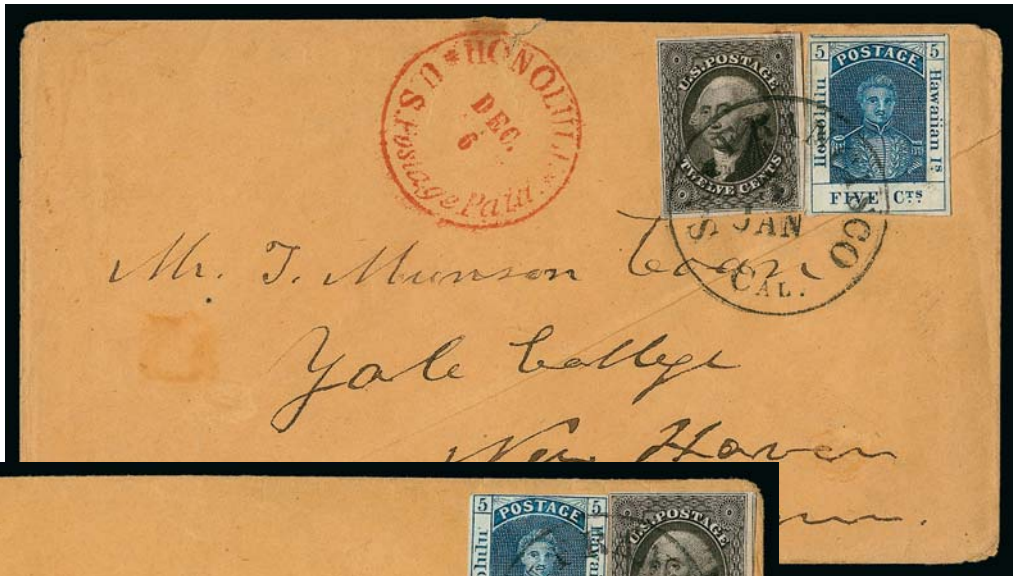 HONOLULU
U.S. Postage Paid.
DEC.
6
U.S. POSTAGE
TWELVE CENTS
5 POSTAGE 5
Honolulu
Hawaiian Is.
FIVE CTS
SAN FRANCISCO
JAN
CAL.
Mr. T. Munson Coan
Yale College
New Haven
Conn.
5 POSTAGE 5
U.S. POSTAGE